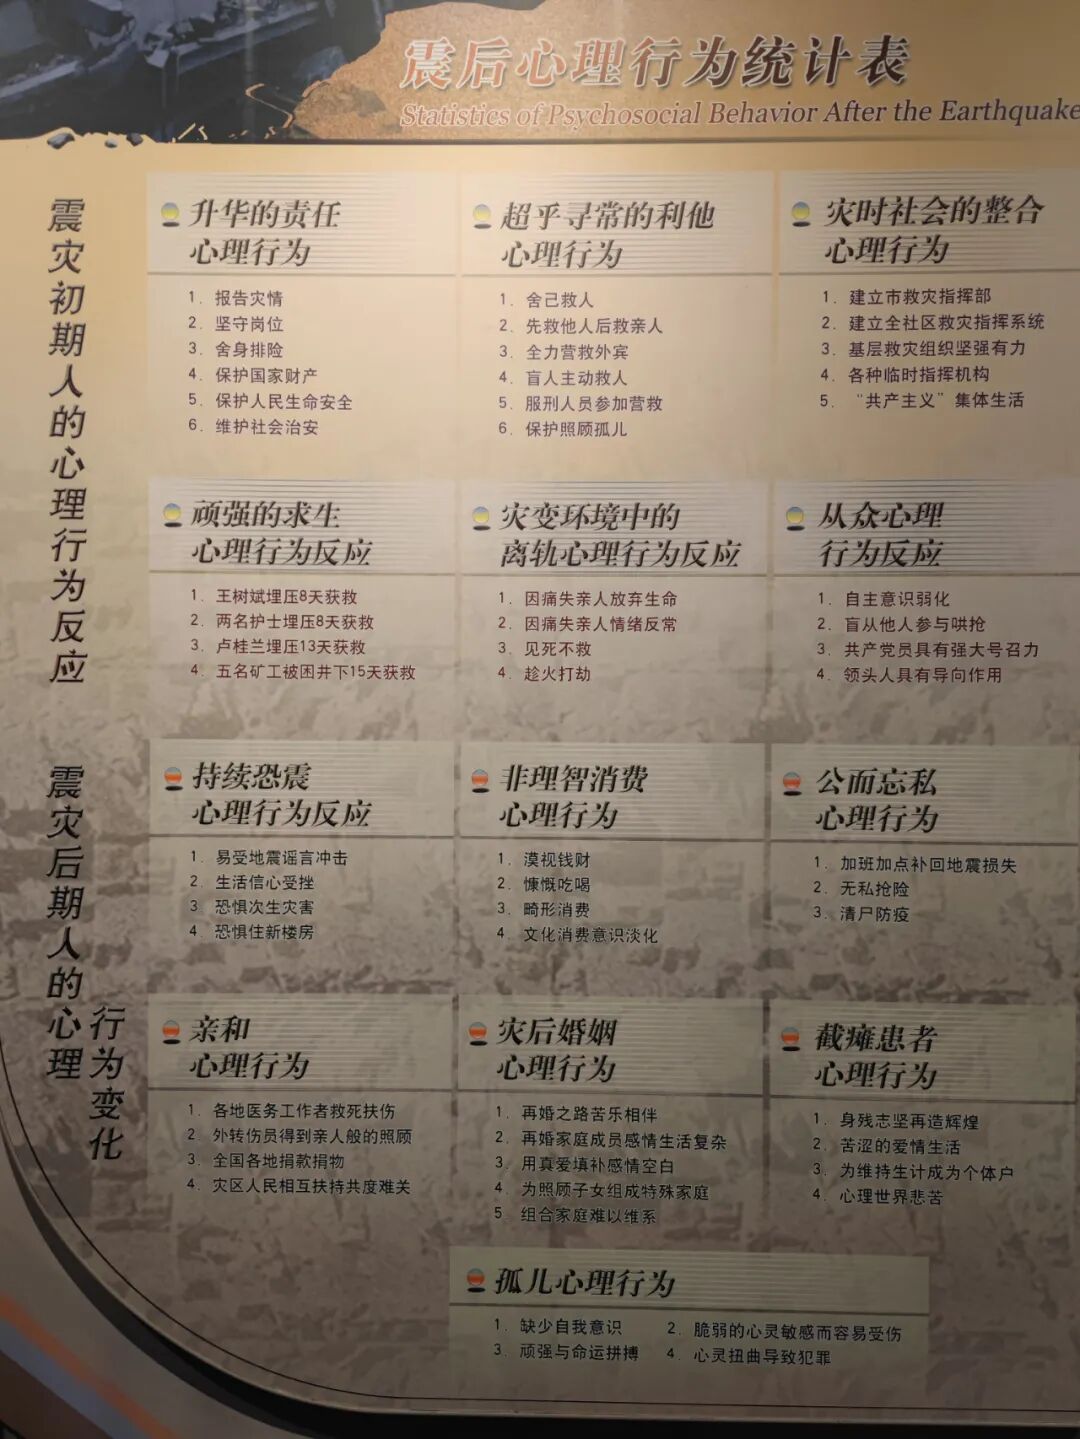 震后心理行为统计表
Statistics of Psychosocial Behavior After the Earthquake
震灾初期人的心理行为反应
升华的责任
心理行为
1. 报告灾情
2. 坚守岗位
3. 舍身排险
4. 保护国家财产
5. 保护人民生命安全
6. 维护社会治安
超乎寻常的利他
心理行为
1. 舍己救人
2. 先救他人后救亲人
3. 全力营救外宾
4. 盲人主动救人
5. 服刑人员参加营救
6. 保护照顾孤儿
灾时社会的整合
心理行为
1. 建立市救灾指挥部
2. 建立全社区救灾指挥系统
3. 基层救灾组织坚强有力
4. 各种临时指挥机构
5. “共产主义”集体生活
顽强的求生
心理行为反应
1. 王树斌埋压8天获救
2. 两名护士埋压8天获救
3. 卢桂兰埋压13天获救
4. 五名矿工被困井下15天获救
灾变环境中的
离轨心理行为反应
1. 因痛失亲人放弃生命
2. 因痛失亲人情绪反常
3. 见死不救
4. 趁火打劫
从众心理
行为反应
1. 自主意识弱化
2. 盲从他人参与哄抢
3. 共产党员具有强大号召力
4. 领头人具有导向作用
震灾后期人的心理
行为变化
持续恐震
心理行为反应
1. 易受地震谣言冲击
2. 生活信心受挫
3. 恐惧次生灾害
4. 恐惧住新楼房
非理智消费
心理行为
1. 漠视钱财
2. 慷慨吃喝
3. 畸形消费
4. 文化消费意识淡化
公而忘私
心理行为
1. 加班加点补回地震损失
2. 无私抢险
3. 清尸防疫
亲和
心理行为
1. 各地医务工作者救死扶伤
2. 外转伤员得到亲人般的照顾
3. 全国各地捐款捐物
4. 灾区人民相互扶持共度难关
灾后婚姻
心理行为
1. 再婚之路苦乐相伴
2. 再婚家庭成员感情生活复杂
3. 用真爱填补感情空白
4. 为照顾子女组成特殊家庭
5 组合家庭难以维系
截瘫患者
心理行为
1. 身残志坚再造辉煌
2. 苦涩的爱情生活
3. 为维持生计成为个体户
4. 心理世界悲苦
孤儿心理行为
1. 缺少自我意识 2. 脆弱的心灵敏感而容易受伤
3. 顽强与命运拼搏 4. 心灵扭曲导致犯罪